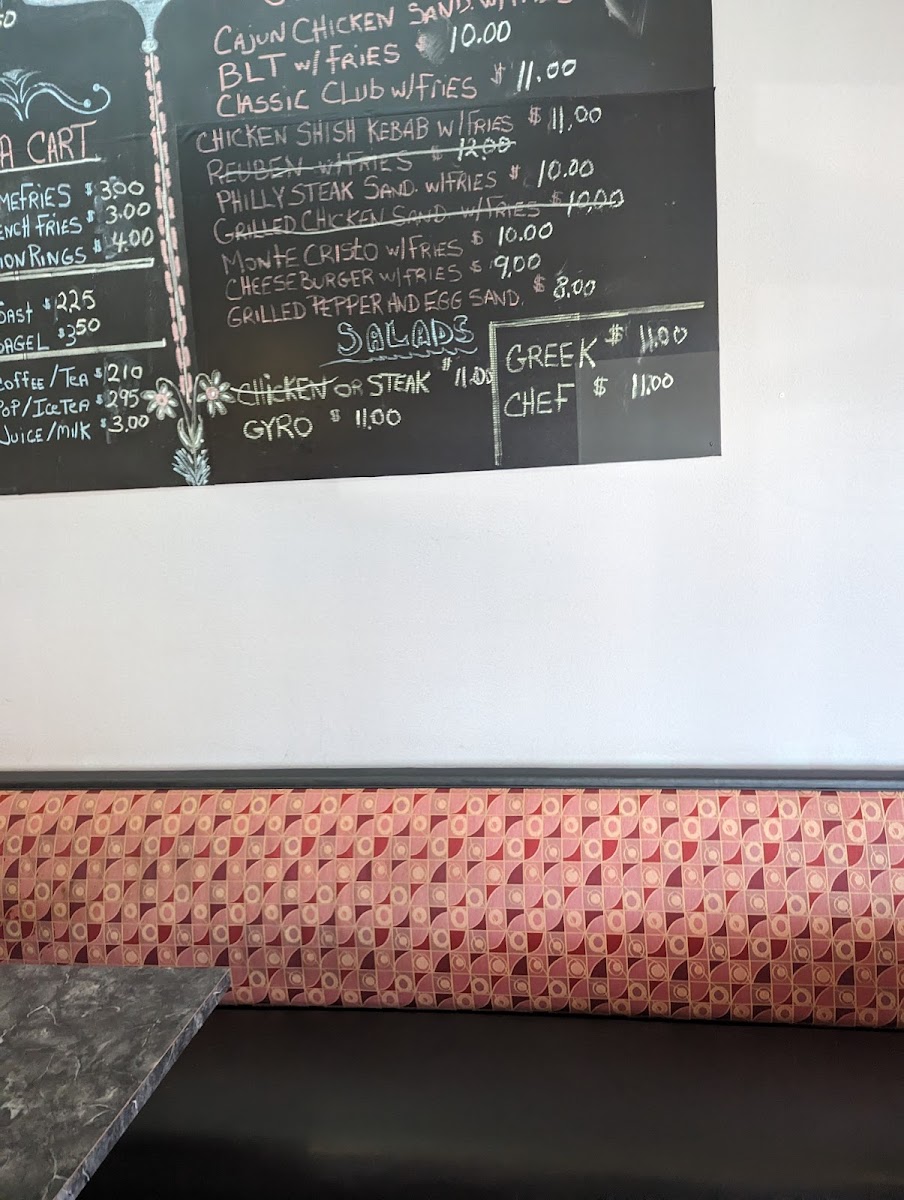 CAJUN CHICKEN SAND. W/
BLT W/FRIES $ 10.00
CLASSIC CLUB W/FRIES $ 11.00
CHICKEN SHISH KEBAB W/FRIES $ 11.00
REUBEN W/FRIES $ 12.00
PHILLY STEAK SAND. W/FRIES $ 10.00
GRILLED CHICKEN SAND. W/FRIES $ 10.00
MONTE CRISTO W/FRIES $ 10.00
CHEESEBURGER W/FRIES $ 9.00
GRILLED PEPPER AND EGG SAND. $ 8.00
SALADS
CHICKEN OR STEAK $ 11.00
GYRO $ 11.00
GREEK $ 11.00
CHEF $ 11.00
A CART
MEFRIES $ 3.00
ENCH FRIES $ 3.00
ION RINGS $ 4.00
OAST $ 2.25
BAGEL $ 3.50
COFFEE/TEA $ 2.10
POP/ICETEA $ 2.95
JUICE/MILK $ 3.00